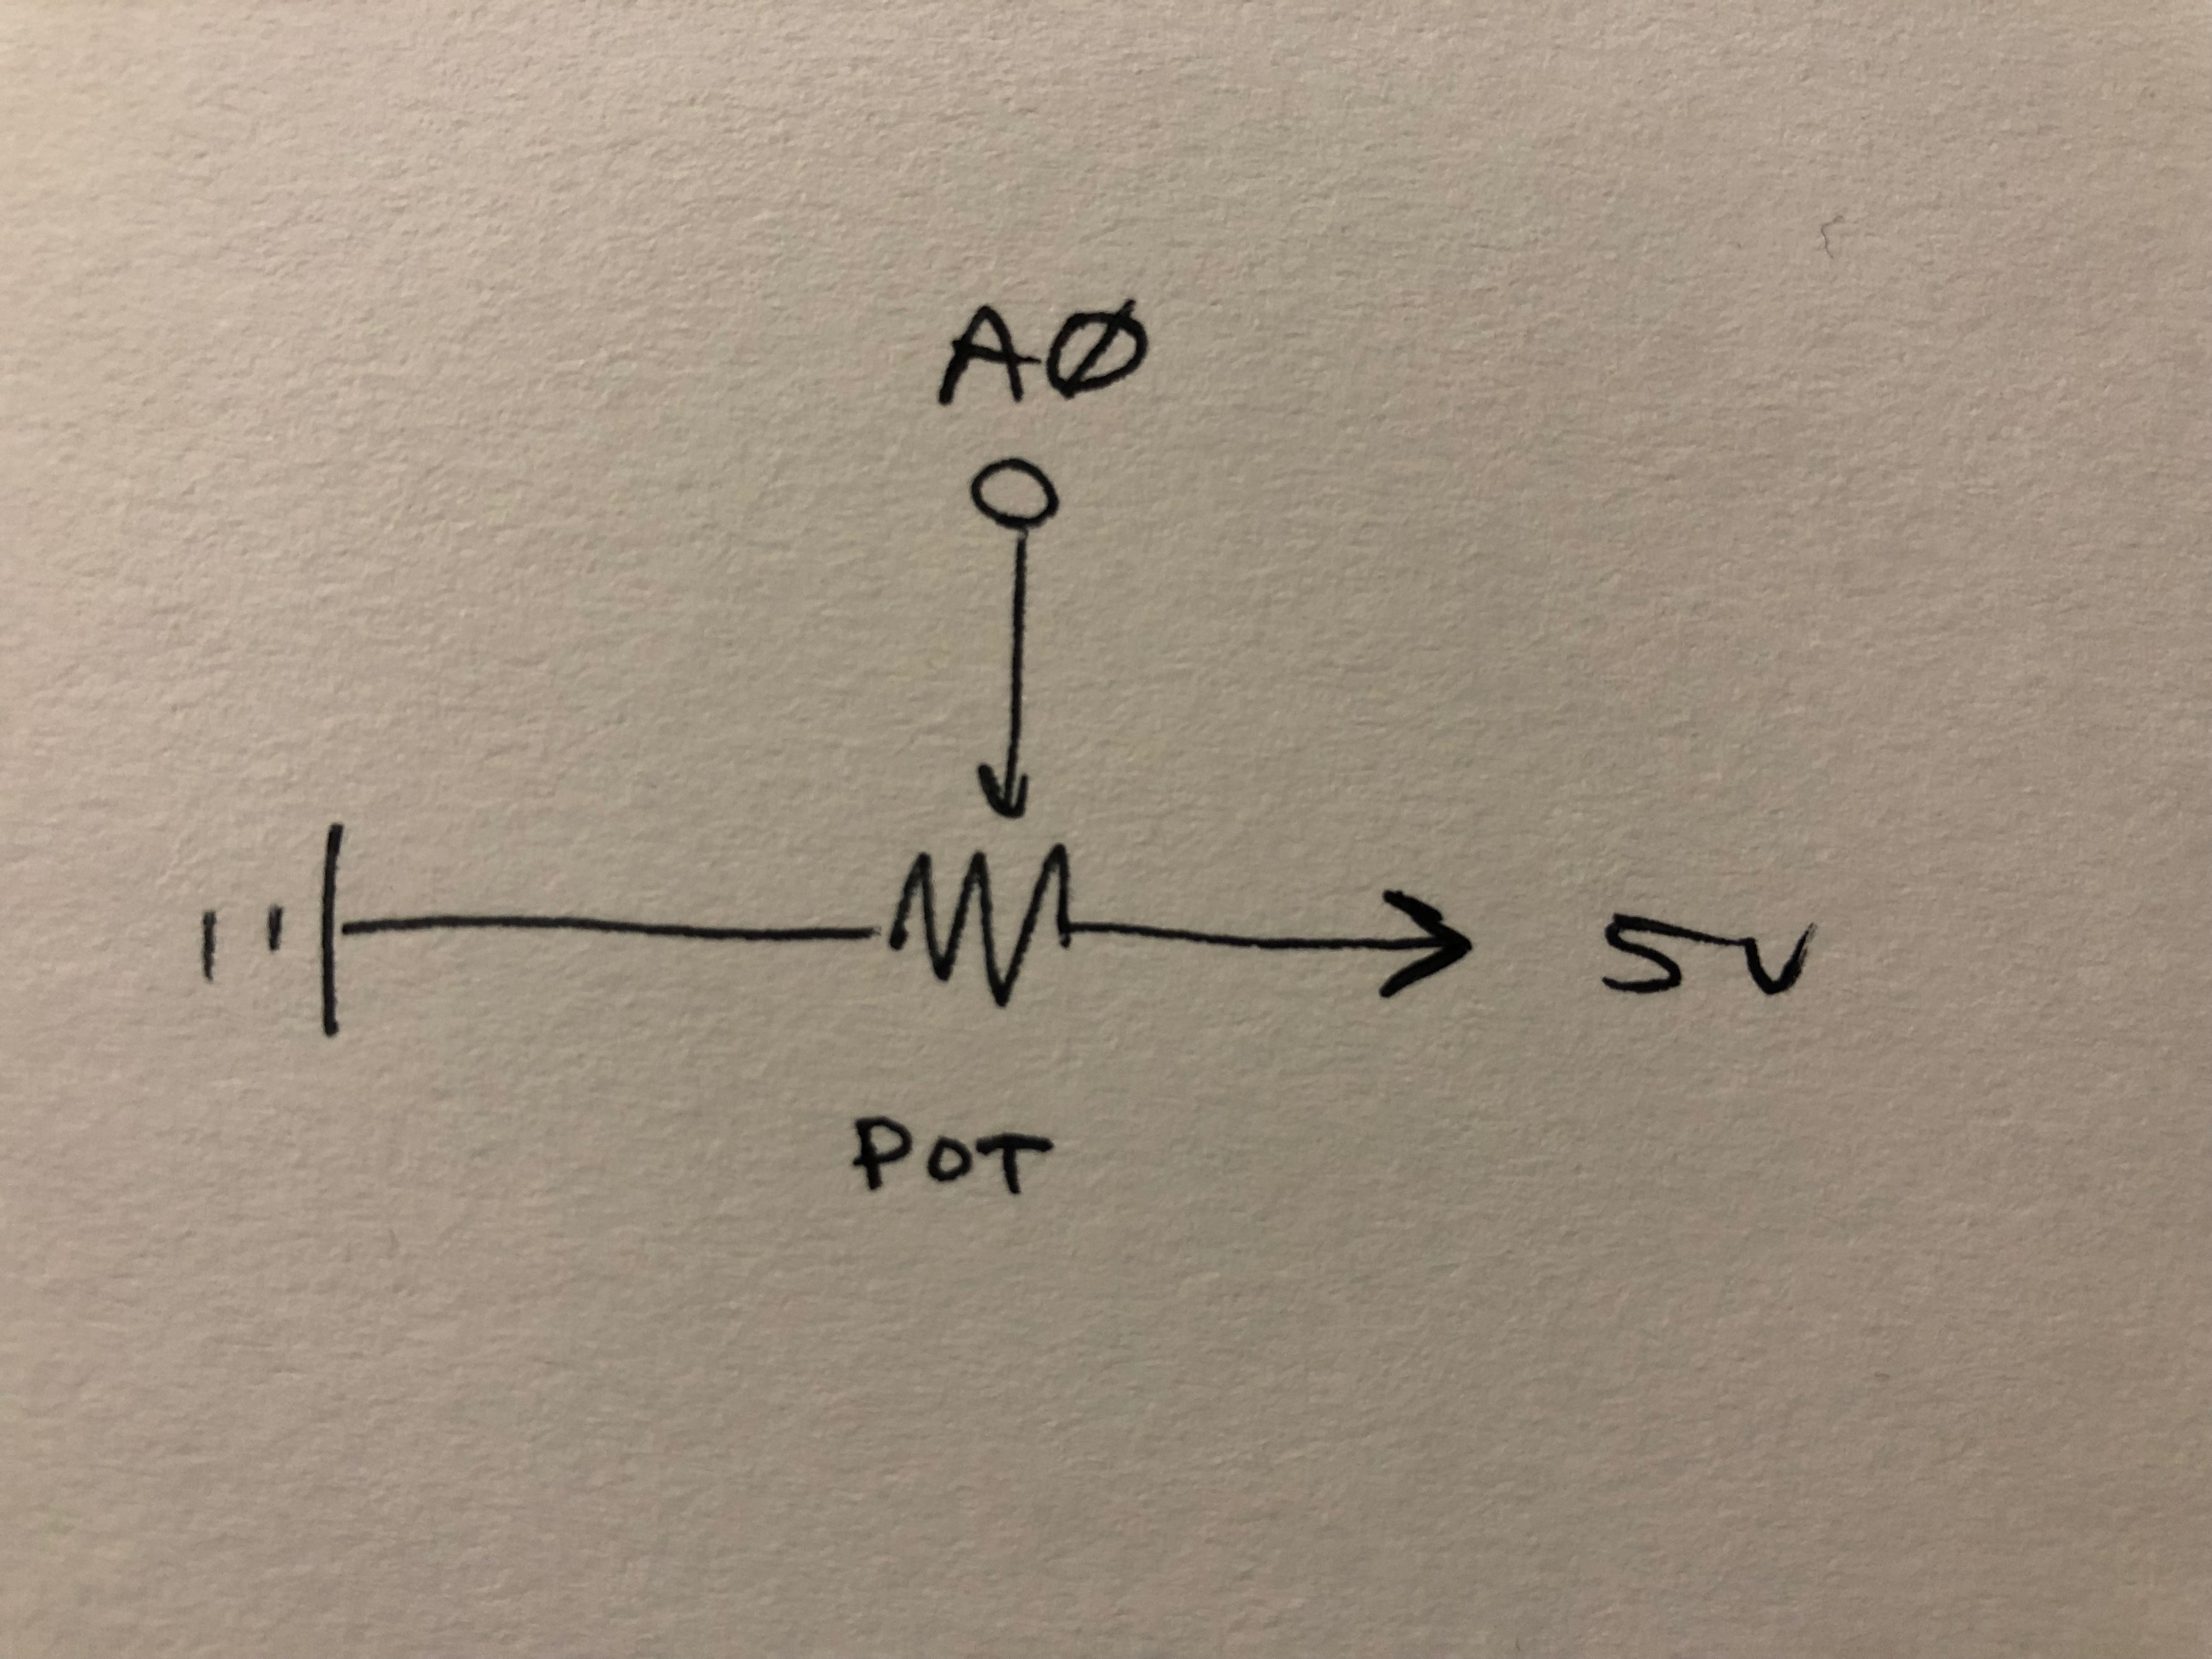 AØ
5V
POT